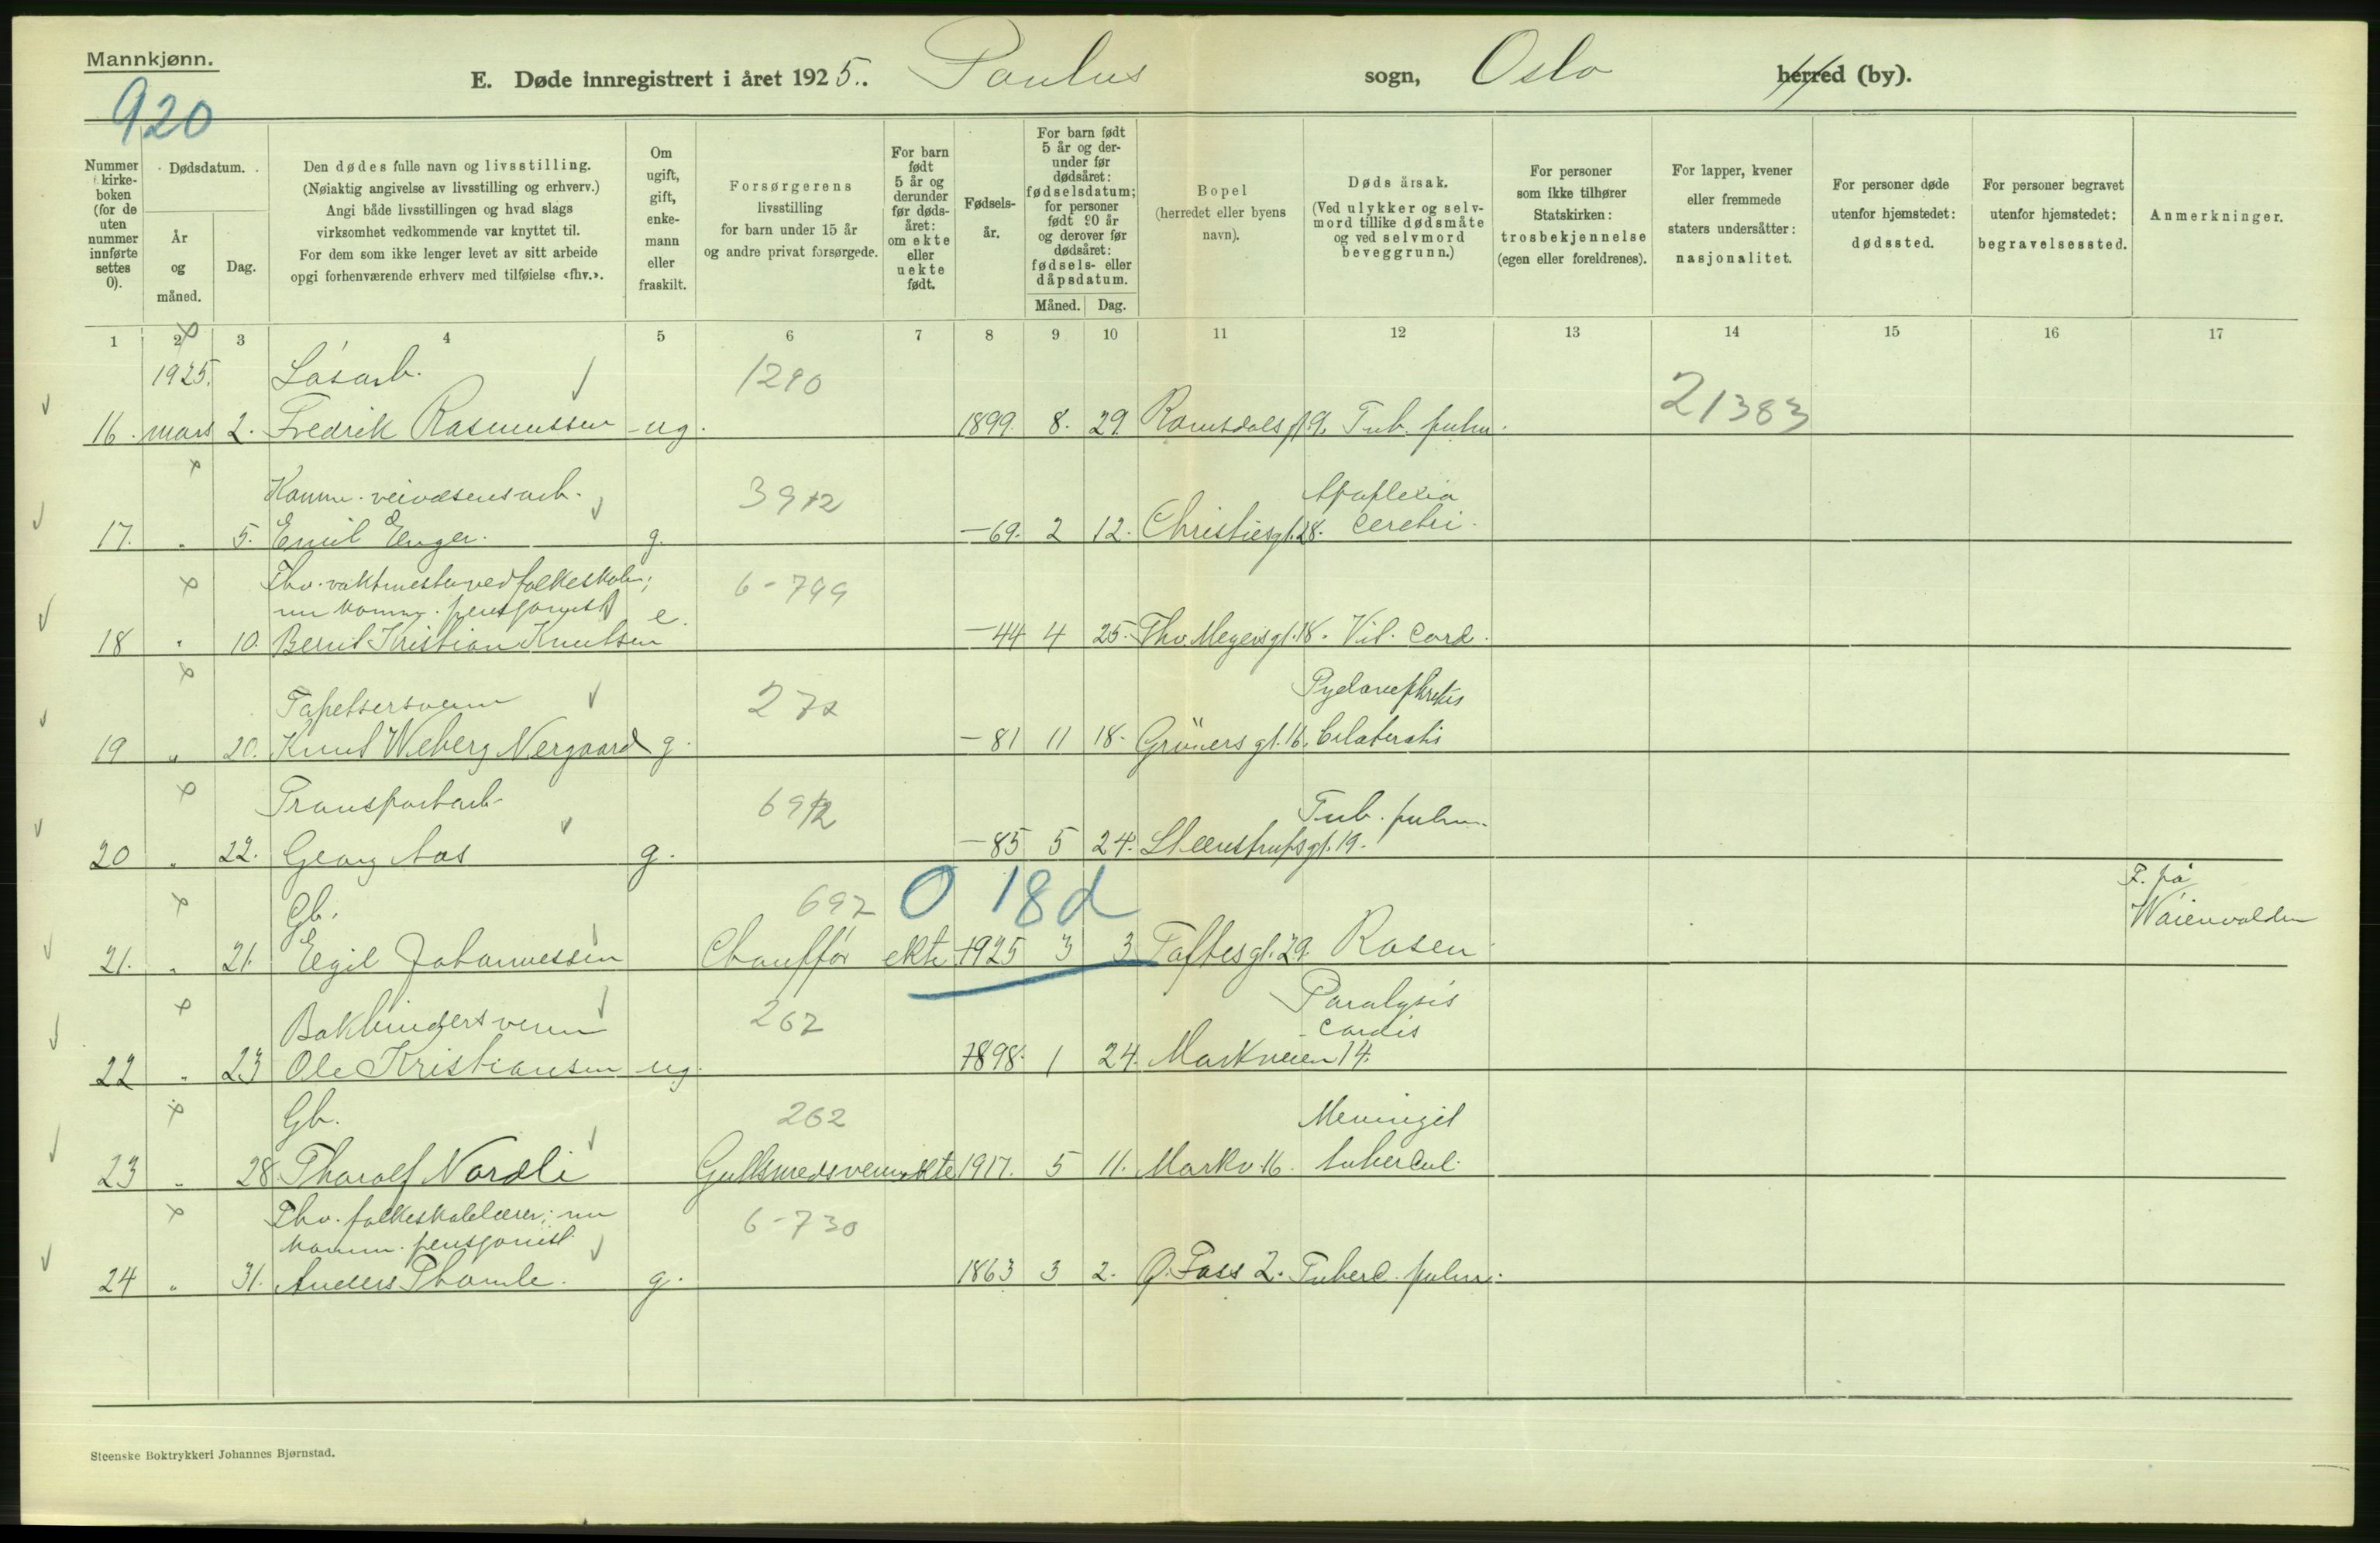 Mannkjønn.
920
E. Døde innregistrert i året 1925. Paulus sogn, Oslo herred (by).
Nummer i kirkeboken (for de uten nummer innførte settes 0).
Dødsdatum.
År og måned.
Dag.
Den dødes fulle navn og livsstilling.
(Nøiaktig angivelse av livsstilling og erhverv.)
Angi både livsstillingen og hvad slags
virksomhet vedkommende var knyttet til.
For dem som ikke lenger levet av sitt arbeide
opgi forhenværende erhverv med tilføielse «fhv.».
Om ugift, gift, enkemann eller fraskilt.
Forsørgerens
livsstilling
for barn under 15 år
og andre privat forsørgede.
For barn født 5 år og derunder før dødsåret: om ekte eller uekte født.
Fødselsår.
For barn født 5 år og derunder før dødsåret: fødselsdatum; for personer født 90 år og derover før dødsåret: fødsels- eller dåpsdatum.
Måned. Dag.
Bopel
(herredet eller byens
navn).
Dødsårsak.
(Ved ulykker og selvmord tillike dødsmåte og ved selvmord beveggrunn.)
For personer
som ikke tilhører
Statskirken:
trosbekjennelse
(egen eller foreldrenes).
For lapper, kvener
eller fremmede
staters undersåtter:
nasjonalitet.
For personer døde
utenfor hjemstedet:
dødssted.
For personer begravet
utenfor hjemstedet:
begravelsessted.
Anmerkninger.
1 2 3 4 5 6 7 8 9 10 11 12 13 14 15 16 17
1925. Løsarb. 1290
21383
16. mars 2. Fredrik Rasmussen ug. 1899. 8. 29. Romsdalsgt. 9. Tub. pulm.
Komm. veivæsensarb. 3912 Apoplexia
17. " 5. Emil Enger. g. -69. 2 12. Christiesgt. 28. cerebri.
Fhv. vaktmester ved folkeskolen; 6-799
nu komm. pensjonist
18 " 10. Bernt Kristian Knutsen e. -44 4 25. Thv. Meyersgt. 18. Vit. cord.
Tapetsersvenn 272 Pyelonephritis
19 " 20. Knut Weberg Nergaard g. -81 11 18. Grüners gt. 16. bilateralis
Transportarb. 6912 Tub. pulm.
20 " 22. Georg Aas g. -85 5 24. Steenstrupsgt. 19.
Gb. 692 0 18d F. på
21. " 21. Egil Johannessen Chauffør ekte 1925 3 3 Toftesgt. 29. Rosen
Bokbindersvenn 262 Paralysis
cordis
22 " 23 Ole Kristiansen ug. 1898. 1 24. Markveien 14.
Gb. 262 Meningit
23 " 28 Tharalf Nordli Gullsmedsvenn ekte 1917. 5 11. Markv. 16. tubercul.
Fhv. folkeskolelærer; nu 6-730
komm. pensjonist
24 " 31. Anders Thomle. g. 1863 3 2. Ø. Foss 2. Tuberc. pulm.
Steenske Boktrykkeri Johannes Bjørnstad.